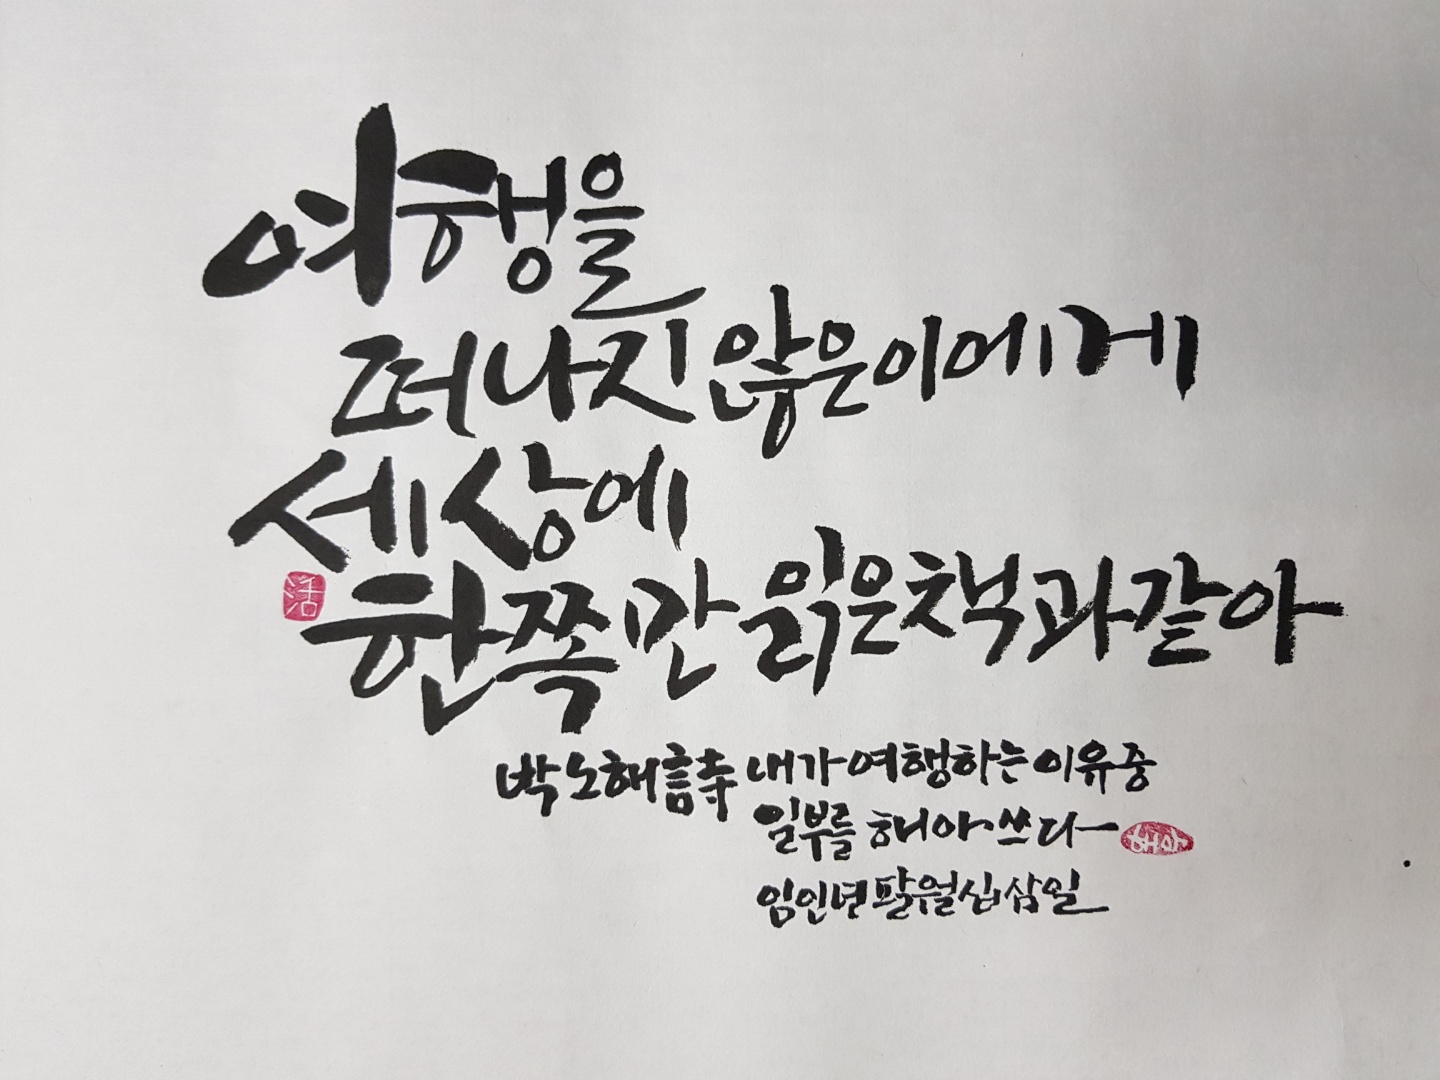 여행을
떠나지 않은 이에게
세상에
活
한쪽만 읽은 책과 같아
박노해 詩 내가 여행하는 이유 중
일부를 해아 쓰다
해아
임인년 팔월 십삼일